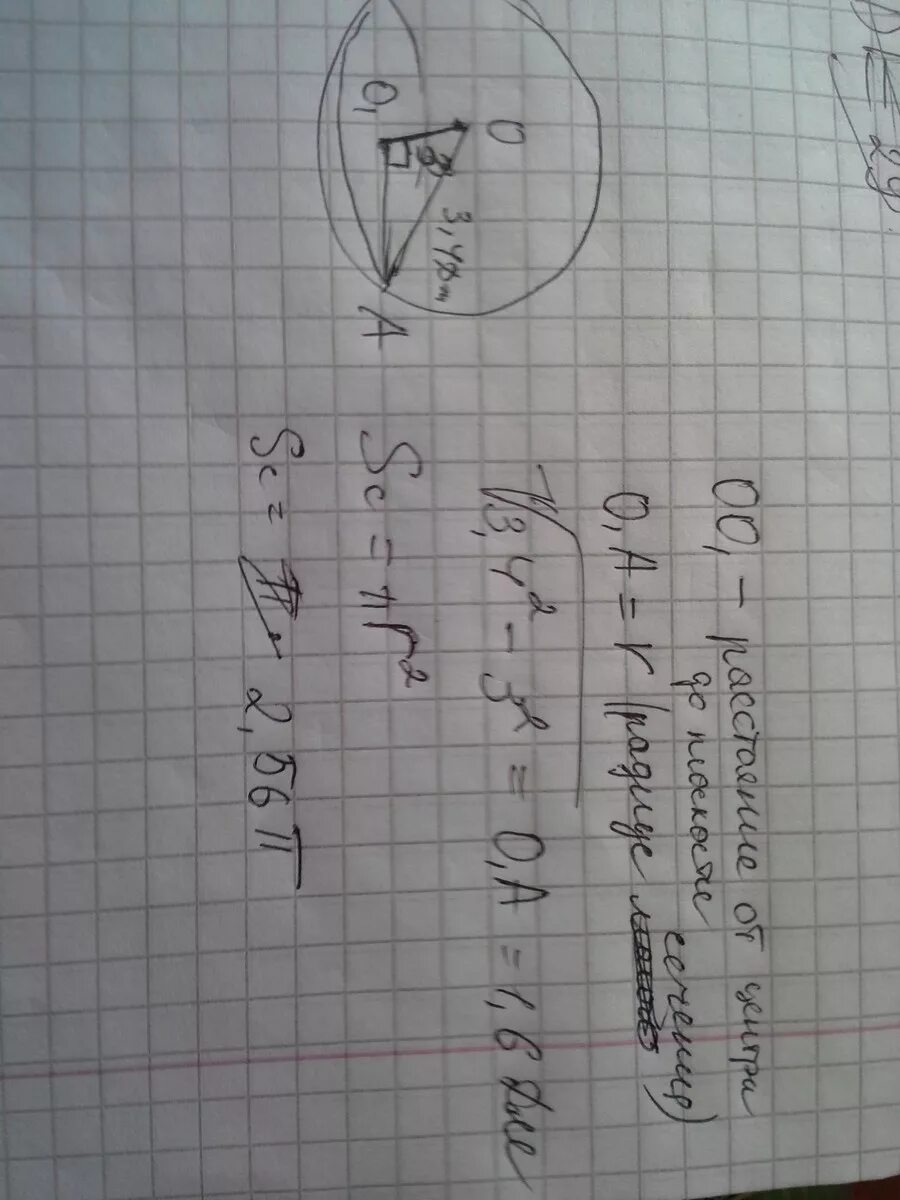 29.
O
O₁
3
3,4дм
A
OO₁ – расстояние от центра
до плоскости
O₁A = r (радиус сечения)
√3,4² – 3² = O₁A = 1,6 дм
Sc = πr²
Sc = 2,56 π